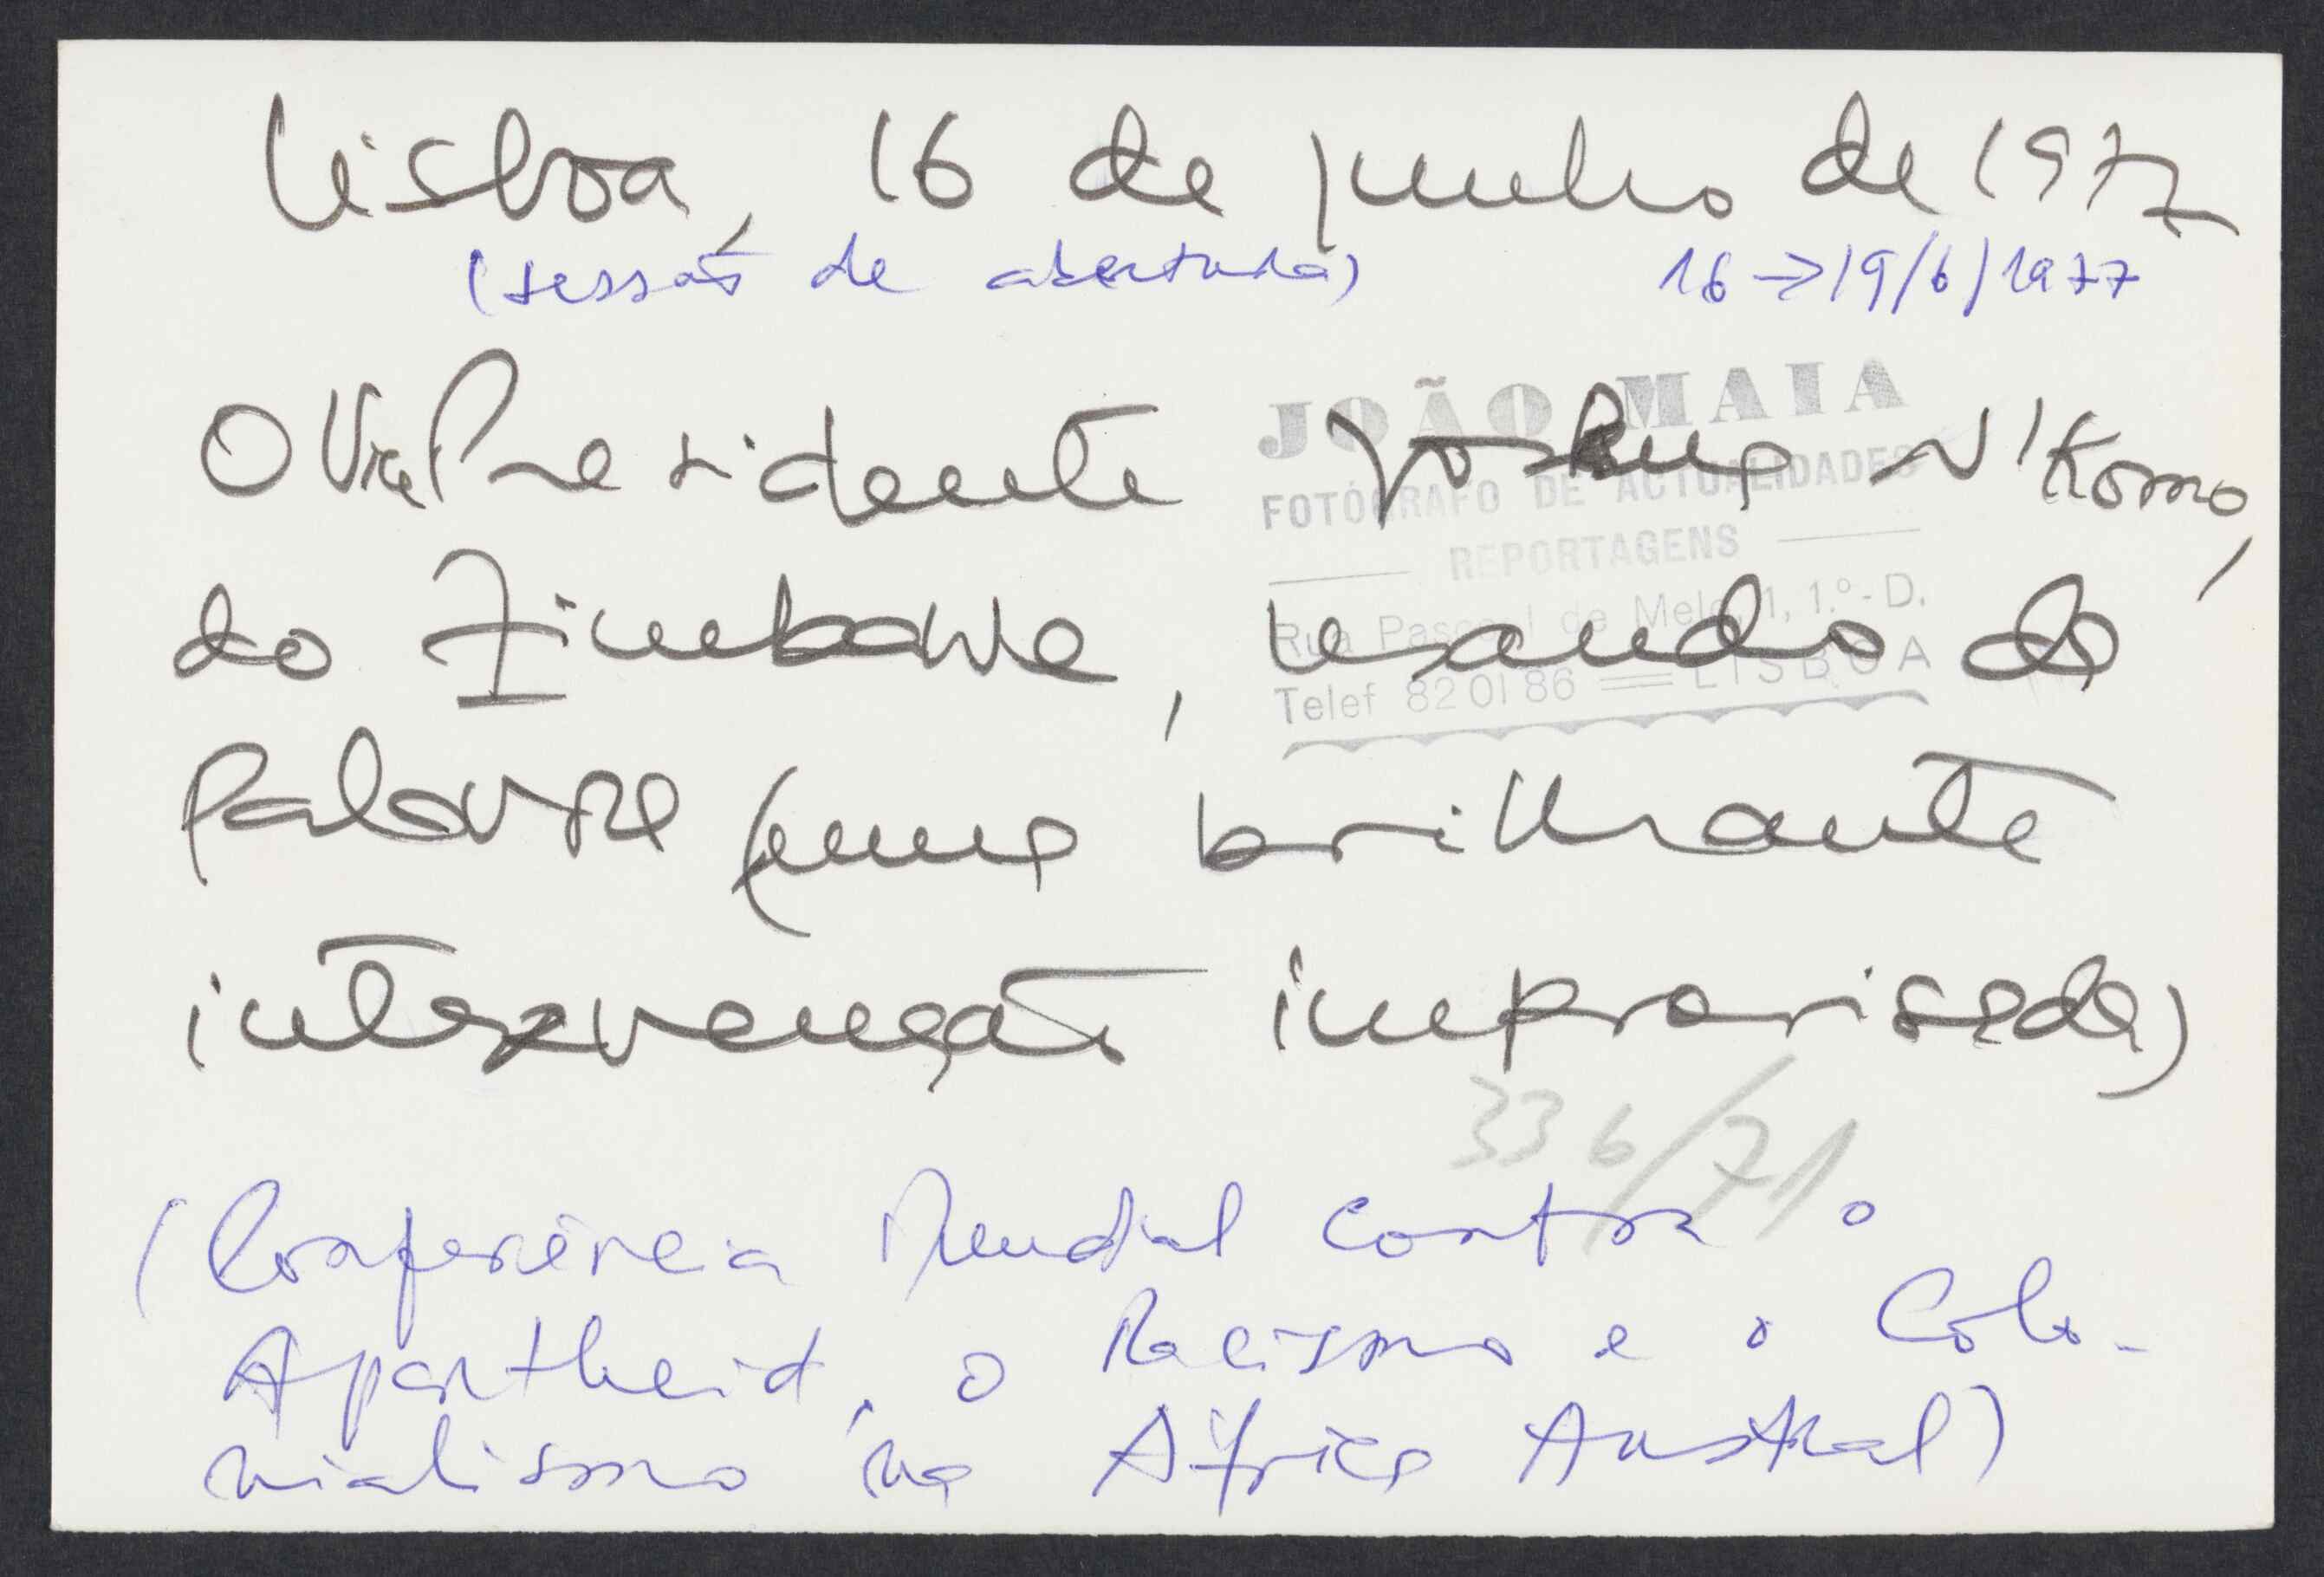 Lisboa, 16 de junho de 1977
(sessão de abertura) 16→19/6/1977
JOÃO MAIA
FOTÓGRAFO DE ACTUALIDADES
REPORTAGENS
Rua Pascoal de Melo, 1, 1.º-D.
Telef 820186 = LISBOA
O Vice Presidente Joshua N'Komo,
do Zimbabwe, usando da
palavra (numa brilhante
intervenção improvisada)
336/71
(Conferência Mundial contra o
Apartheid, o Racismo e o Colo-
nialismo na África Austral)